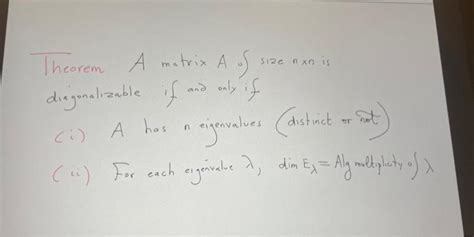 Theorem A matrix A of size nxn is
diagonalizable if and only if
(i) A has n eigenvalues (distinct or not)
(ii) For each eigenvalue λ, dim Eλ = Alg multiplicity of λ